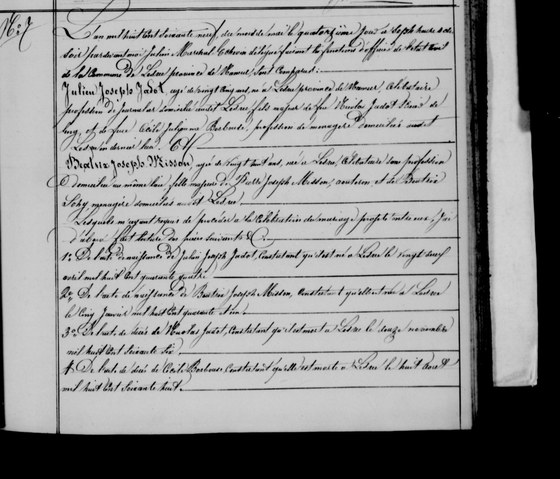 N° 7
L'an mil huit cent soixante neuf, du mois de mai le quatorzième jour à sept heures du
soir pardevant nous Julien Marchal Echevin délégué faisant les fonctions d'officier de l'état civil
de la Commune de Lesve province de Namur, sont comparus:
Julien Joseph Jadot, agé de vingt cinq ans, né à Lesve province de Namur, Célibataire
profession de journalier domicilié audit Lesve, fils majeur de feu Nicolas Jadot
et de feue Cécile Julienne Barbuse, profession de ménagère domiciliés audit
Lesve en dernier lieu. Et
Beatrix Joseph Misson, agée de vingt huit ans, née à Lesve, Célibataire sans profession
domiciliée au même lieu, fille majeure de Pierre Joseph Misson, et de Beatrix
Sohy ménagère domiciliés audit Lesve
Lesquels m'ayant requis de procéder à la Célébration du mariage projeté entre eux, J'ai
d'abord fait lecture des pièces suivantes
1° De l'acte de naissance de Julien Joseph Jadot, Constatant qu'il est né à Lesve le vingt deux
avril mil huit cent quarante quatre.
2° De l'acte de naissance de Beatrix Joseph Misson, Constatant qu'elle est née à Lesve
le Cinq Janvier mil huit cent quarante et un.
3° De l'acte de décès de Nicolas Jadot, Constatant qu'il est mort à Lesve le douze novembre
mil huit cent soixante six
4° De l'acte de décès de Cécile Barbuse, Constatant qu'elle est morte à Lesve le huit août
mil huit cent soixante huit.